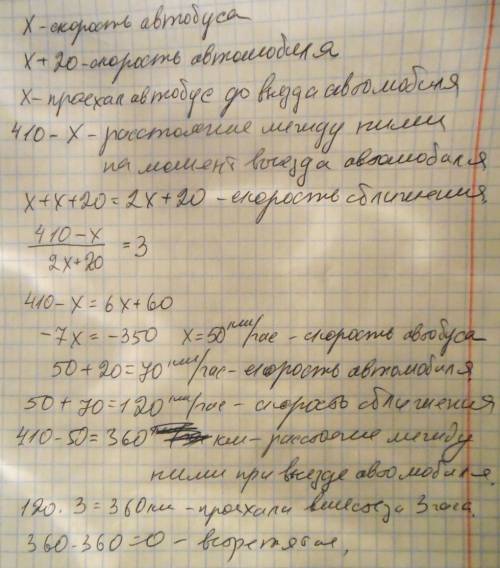 x - скорость автобуса
x + 20 - скорость автомобиля
x - проехал автобус до выезда автомобиля
410 - x - расстояние между ними
на момент выезда автомобиля
x + x + 20 = 2x + 20 - скорость сближения
410 - x / 2x + 20 = 3
410 - x = 6x + 60
-7x = -350 x = 50 км/час - скорость автобуса
50 + 20 = 70 км/час - скорость автомобиля
50 + 70 = 120 км/час - скорость сближения
410 - 50 = 360 км - расстояние между
ними при выезде автомобиля.
120 · 3 = 360 км - проехали вместе за 3 часа.
360 - 360 = 0 - встретятся,